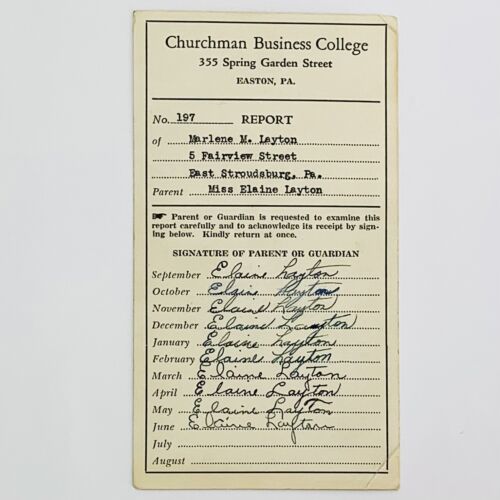 Churchman Business College
355 Spring Garden Street
EASTON, PA.
No. 197 REPORT
of Marlene M. Layton
5 Fairview Street
East Stroudsburg, Pa.
Parent Miss Elaine Layton
☛ Parent or Guardian is requested to examine this
report carefully and to acknowledge its receipt by sign-
ing below. Kindly return at once.
SIGNATURE OF PARENT OR GUARDIAN
September Elaine Layton
October Elaine Layton
November Elaine Layton
December Elaine Layton
January Elaine Layton
February Elaine Layton
March Elaine Layton
April Elaine Layton
May Elaine Layton
June Elaine Layton
July
August